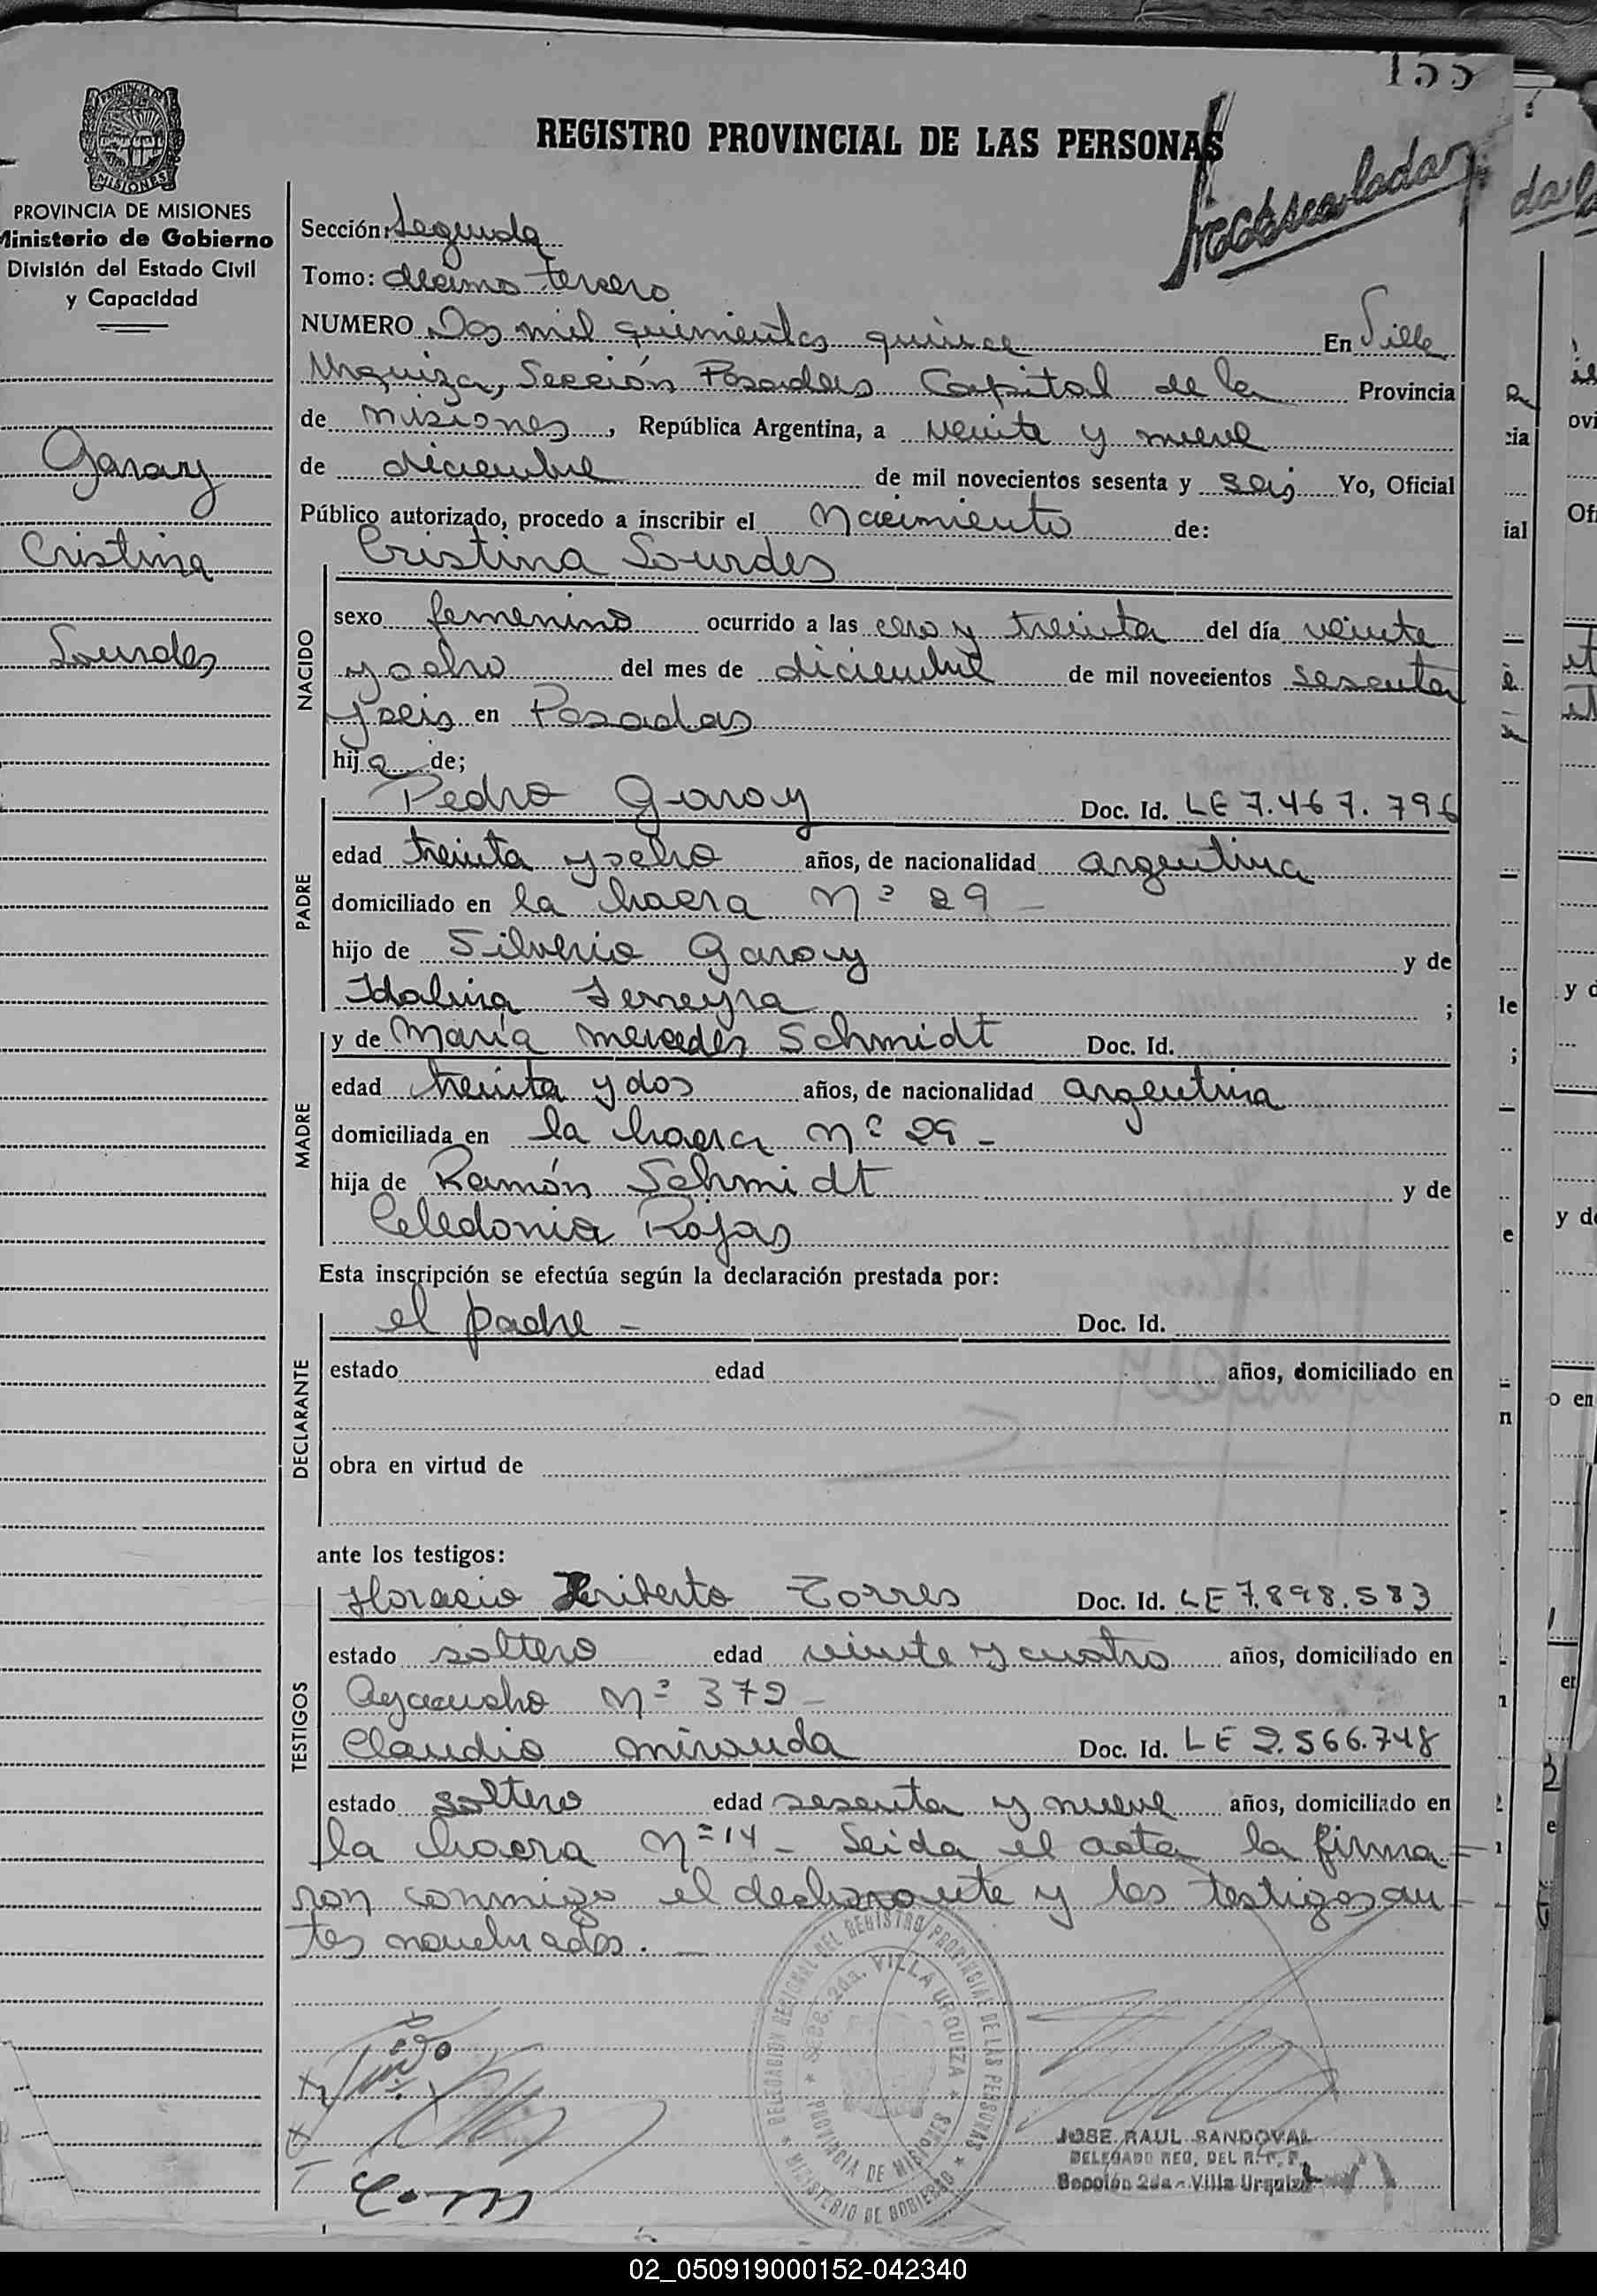 155
REGISTRO PROVINCIAL DE LAS PERSONAS
PROVINCIA DE MISIONES
MISIONES
PROVINCIA DE MISIONES
Ministerio de Gobierno
División del Estado Civil
y Capacidad
Garay
Cristina
Lourdes
Sección: Segunda
Tomo: décimo tercero
NUMERO Dos mil quinientos quince En Villa
Urquiza, Sección Posadas Capital de la Provincia
de misiones, República Argentina, a veinte y nueve
de diciembre de mil novecientos sesenta y seis Yo, Oficial
Público autorizado, procedo a inscribir el Nacimiento de:
Cristina Lourdes
NACIDO
sexo femenino ocurrido a las cero y treinta del día veinte
y ocho del mes de diciembre de mil novecientos sesenta
y seis en Posadas
hija de;
PADRE
Pedro Garay Doc. Id. LE 7.467.796
edad treinta y ocho años, de nacionalidad argentina
domiciliado en la chacra Nº 29 -
hijo de Silverio Garay y de
Idalina Ferreyra ;
MADRE
y de María mercedes Schmidt Doc. Id.
edad treinta y dos años, de nacionalidad argentina
domiciliada en la chacra Nº 29 -
hija de Ramón Schmidt y de
Celedonia Rojas
Esta inscripción se efectúa según la declaración prestada por:
DECLARANTE
el padre - Doc. Id.
estado edad años, domiciliado en
obra en virtud de
ante los testigos:
TESTIGOS
Horacio Heriberto Torres Doc. Id. LE 7.898.583
estado soltero edad veinte y cuatro años, domiciliado en
Ayacucho Nº 372 -
Claudio miranda Doc. Id. LE 2.566.748
estado soltero edad sesenta y nueve años, domiciliado en
la chacra Nº 14 - Leida el acta la firma=
ron conmigo el declarante y los testigos an=
tes nombrados. -
DELEGACION REGIONAL DEL REGISTRO PROVINCIAL DE LAS PERSONAS
MINISTERIO DE GOBIERNO
Secc. 2da. VILLA URQUIZA
PROVINCIA DE MISIONES
C. M
JOSE RAUL SANDOVAL
DELEGADO REG. DEL R. P. P.
Sección 2da - Villa Urquiza
02_050919000152-042340